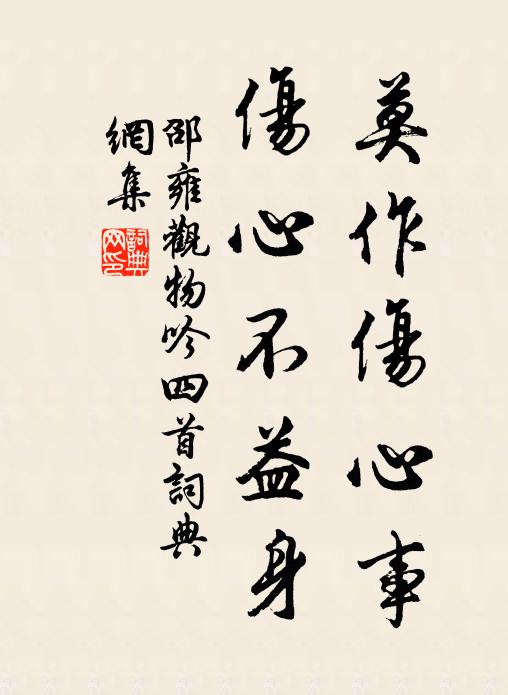 莫作傷心事
傷心不益身
邵雍觀物吟四首詞典
網集
詞典
网印